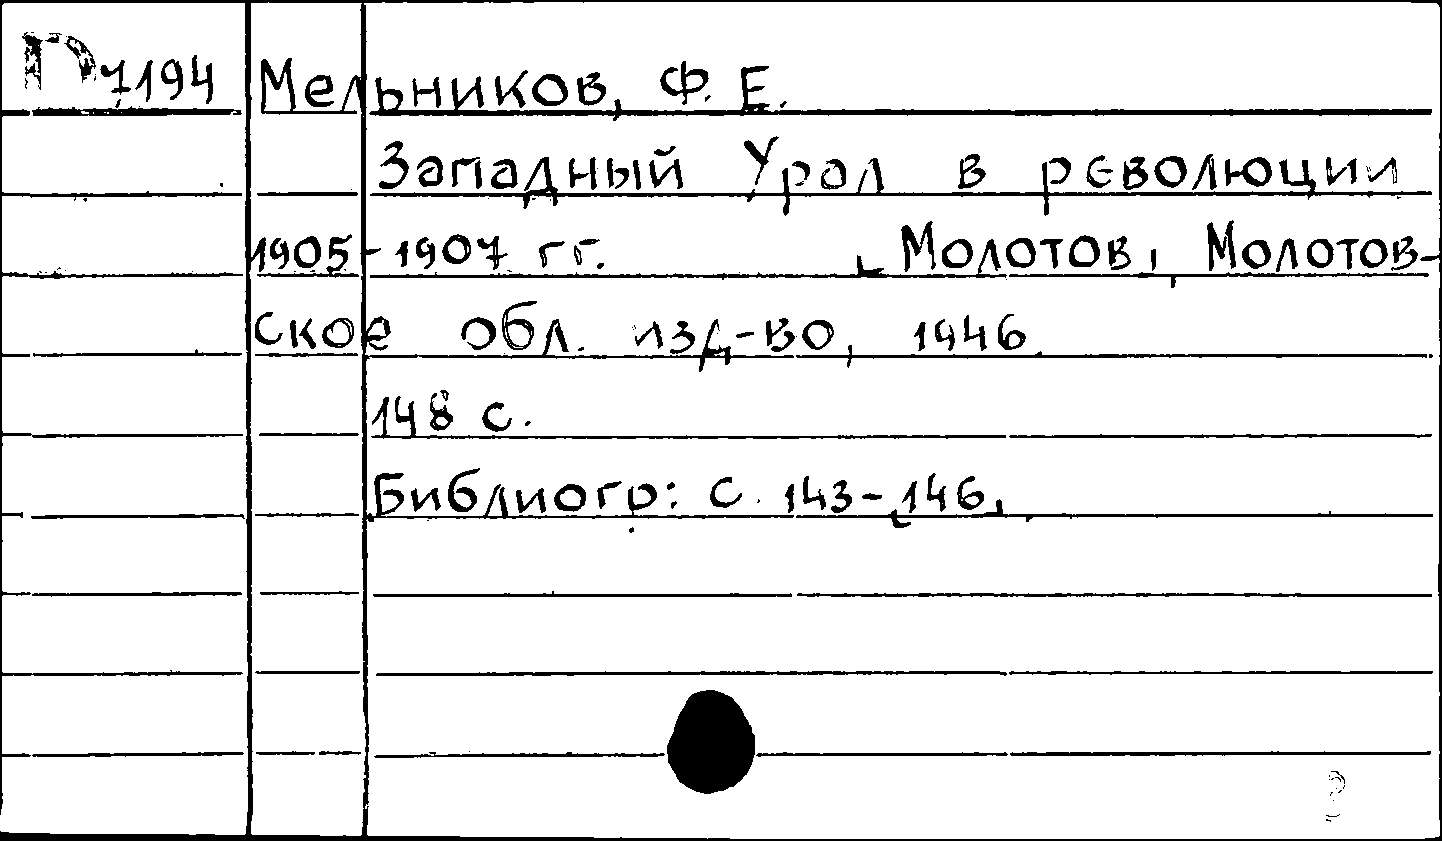 П7194 Мельников, Ф. Е.
Западный Урал в революции
1905-1907 гг. Молотов, Молотов-
ское обл. изд-во, 1946.
148 с.
Библиогр: с. 143-146.